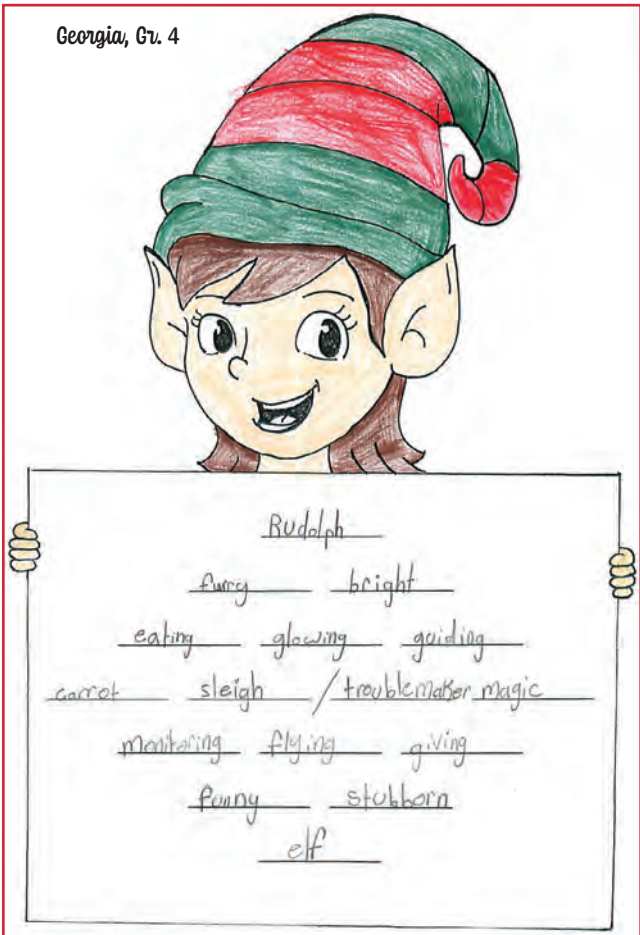 Georgia, Gr. 4
Rudolph
furry bright
eating glowing guiding
carrot sleigh / troublemaker magic
monitoring flying giving
funny stubborn
elf